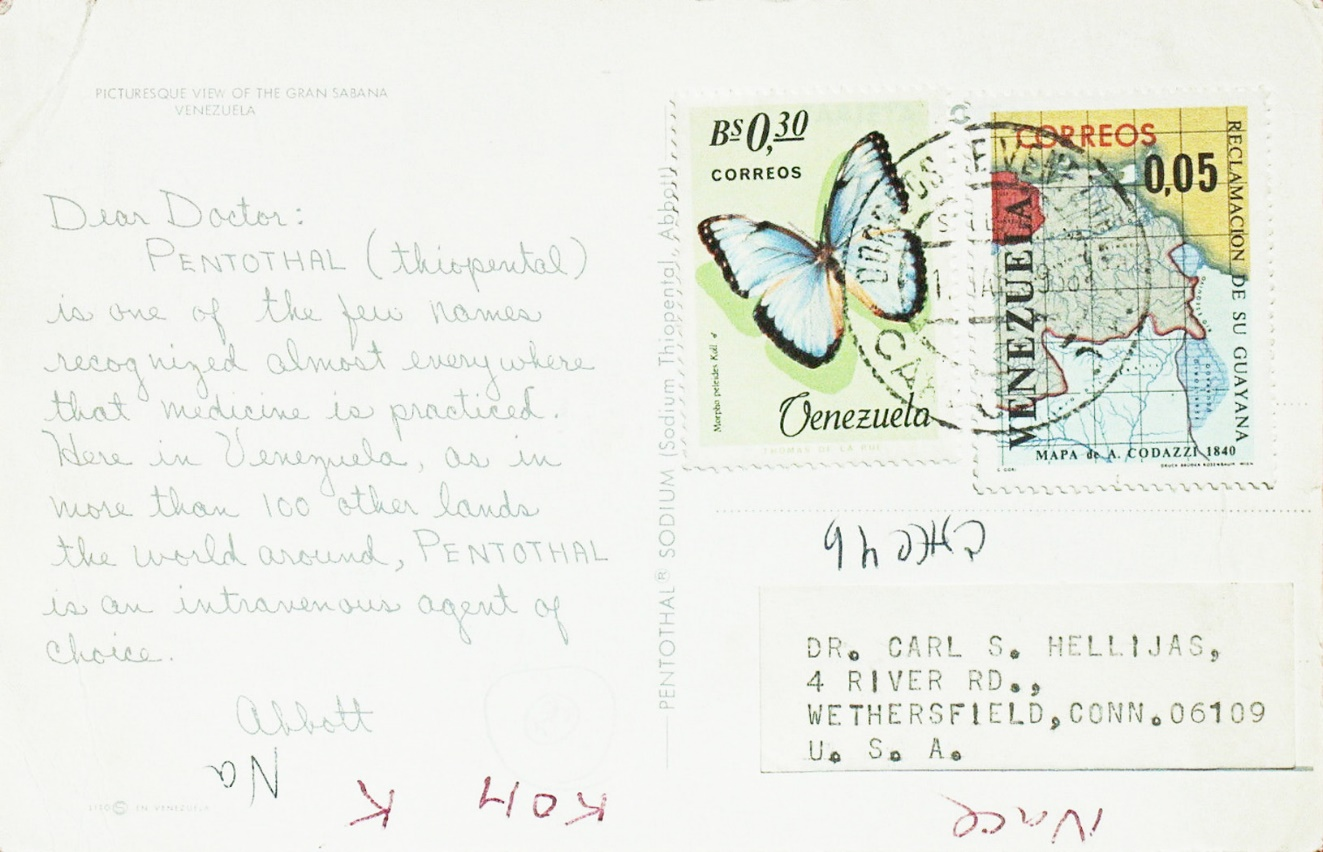 PICTURESQUE VIEW OF THE GRAN SABANA
VENEZUELA
Dear Doctor:
PENTOTHAL (thiopental)
is one of the few names
recognized almost everywhere
that medicine is practiced.
Here in Venezuela, as in
more than 100 other lands
the world around, PENTOTHAL
is an intravenous agent of
choice.
Abbott
Na
K
KOH
EN VENEZUELA
PENTOTHAL® SODIUM (Sodium Thiopental, Abbott)
Bs 0,30
CORREOS
Morpho peleides Koll
Venezuela
THOMAS DE LA RUE
CORREOS
0,05
VENEZUELA
RECLAMACION DE SU GUAYANA
MAPA de A. CODAZZI 1840
DR. CARL S. HELLIJAS,
4 RIVER RD.,
WETHERSFIELD,CONN.06109
U. S. A.